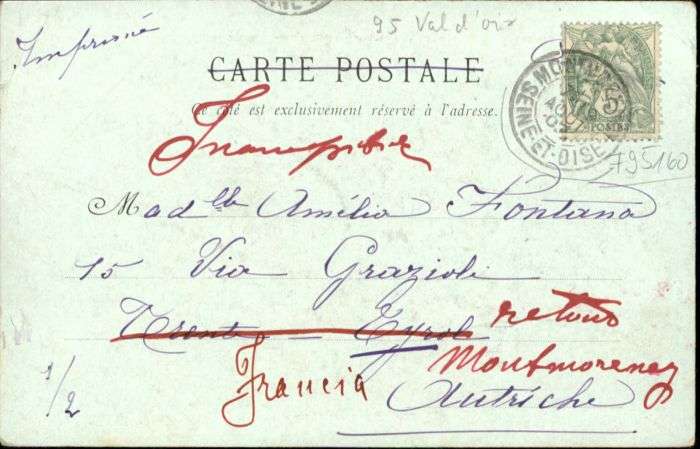 95 Val d'oise
Imprimé
CARTE POSTALE
Ce côté est exclusivement réservé à l'adresse.
5
POSTES
SEINE-ET-OISE
495160
Madlle Amélia Fontana
15 Via Grazioli
Trento - Tyrol retour
1/2 Francia Montmorency
Autriche